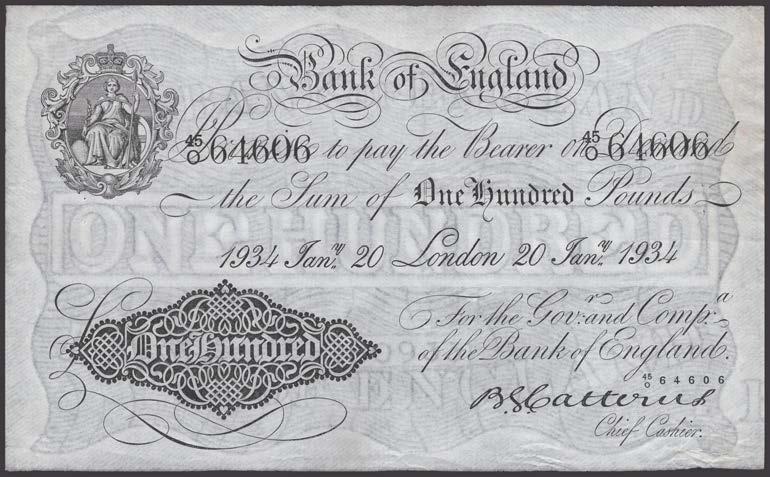 Bank of England
Promise to pay the Bearer on Demand
45/O 64606 45/O 64606
the Sum of One Hundred Pounds
1934 Jany. 20 London 20 Jany. 1934
For the Govr. and Compa.
of the Bank of England.
£ One Hundred
45/O 64606
B G Catterns
Chief Cashier.
ONE HUNDRED